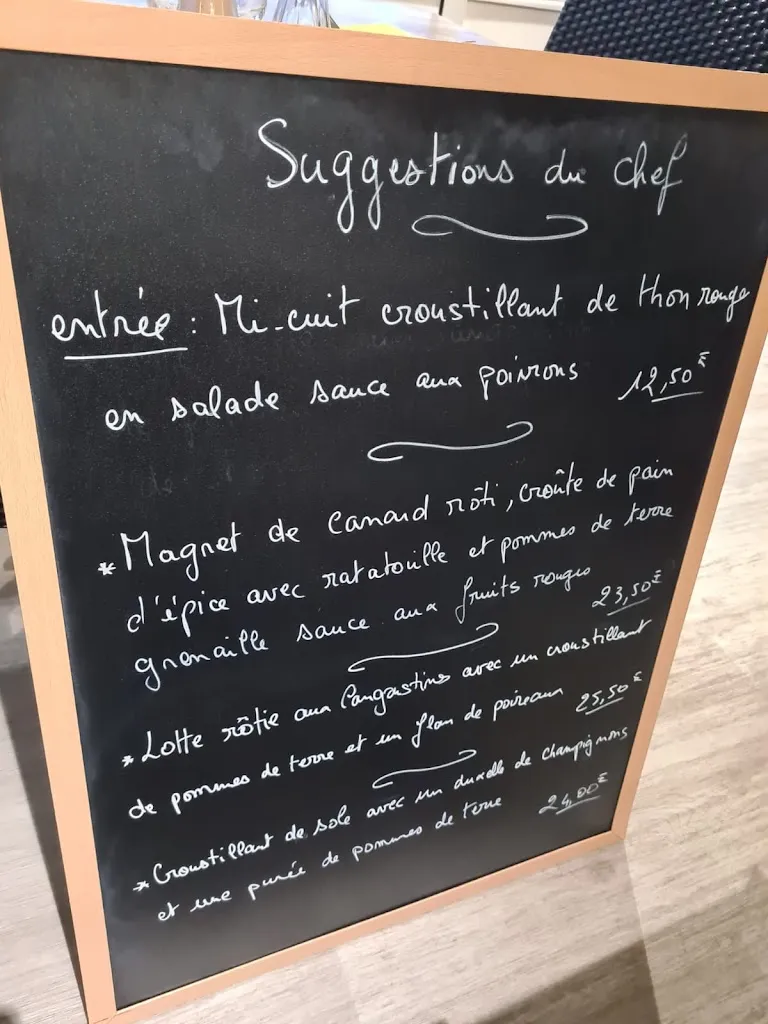 Suggestions du chef
entrée : Mi-cuit croustillant de thon rouge
en salade sauce aux poivrons 12,50€
* Magret de canard rôti, croûte de pain
d'épice avec ratatouille et pommes de terre
grenaille sauce aux fruits rouges 23,50€
* Lotte rôtie aux langastins avec un croustillant
de pommes de terre et un flan de poireaux 25,50€
* Croustillant de sole avec un duxelle de champignons
et une purée de pommes de terre 24,00€